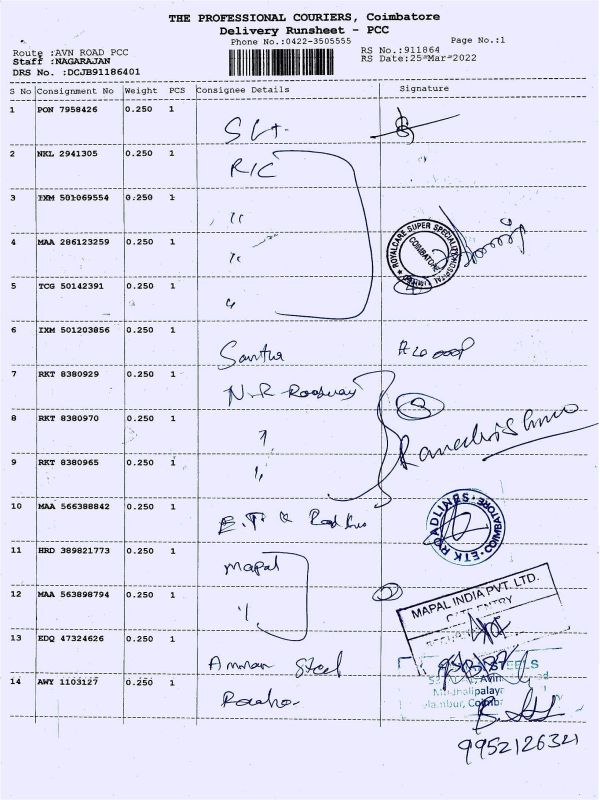 THE PROFESSIONAL COURIERS, Coimbatore
Delivery Runsheet - PCC
Phone No.:0422-3505555
Page No.:1
Route :AVN ROAD PCC
Staff :NAGARAJAN
DRS No. :DCJB91186401
RS No.:911864
RS Date:25-Mar-2022
S No Consignment No Weight PCS Consignee Details Signature
1 PON 7958426 0.250 1
2 NKL 2941305 0.250 1 R/C
3 IXM 501069554 0.250 1 "
4 MAA 286123259 0.250 1 "
ROYALCARE SUPER SPECIALITY HOSPITAL LIMITED
COIMBATORE
5 TCG 50142391 0.250 1 "
4
6 IXM 501203856 0.250 1 Santha
7 RKT 8380929 0.250 1 N.R Roadways
3
8 RKT 8380970 0.250 1 "
Ramakrishnan
9 RKT 8380965 0.250 1 "
10 MAA 566388842 0.250 1
ETK ROADLINES COIMBATORE
11 HRD 389821773 0.250 1 Mapal
12 MAA 563898794 0.250 1 "
2
MAPAL INDIA PVT. LTD.
GATE ENTRY
13 EDQ 47324626 0.250 1 Amman Steel
STEELS
14 AWY 1103127 0.250 1
Coimb
9952126321